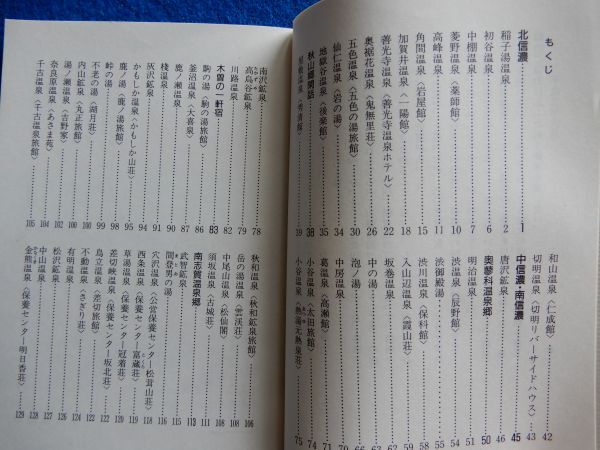 もくじ
北信濃 1
稲子湯温泉 2
初谷温泉 6
中棚温泉 7
菱野温泉〈薬師館〉 10
高峰温泉 11
角間温泉〈岩屋館〉 15
加賀井温泉〈一陽館〉 18
善光寺温泉〈善光寺温泉ホテル〉 22
奥裾花温泉〈鬼無里荘〉 26
五色温泉〈五色の湯旅館〉 30
仙仁温泉〈岩の湯〉 34
地獄谷温泉〈後楽館〉 35
秋山郷閑話 39
屋敷温泉〈秀清館〉 39
和山温泉〈仁成館〉 42
切明温泉〈切明リバーサイドハウス〉 43
中信濃・南信濃 45
唐沢鉱泉 46
奥蓼科温泉郷 50
明治温泉 51
渋温泉〈辰野館〉 54
渋御殿湯 56
渋川温泉〈保科館〉 58
入山辺温泉〈霞山荘〉 59
坂巻温泉
中の湯
泡ノ湯
中房温泉
葛温泉〈高瀬館〉 71
小谷温泉〈太田旅館〉 74
小谷温泉〈熱湯元熱泉荘〉 75
南沢鉱泉 78
高烏谷鉱泉 79
川路温泉 82
木曽の一軒宿 83
駒の湯〈駒の湯旅館〉 86
釜沼温泉〈大喜泉〉 87
鹿ノ瀬温泉 90
棧温泉 91
灰沢鉱泉 94
かもしか温泉〈かもしか山荘〉 95
鹿ノ湯〈鹿ノ湯旅館〉 98
峠の湯 99
不老の湯〈湖月荘〉
内山鉱泉〈丸正旅館〉
湯ノ瀬温泉〈吉野家〉
奈良原温泉〈あさま苑〉 104
千古温泉〈千古温泉旅館〉 105
秋和温泉〈秋和鉱泉旅館〉 106
岳の湯温泉〈雲渓荘〉 108
中尾山温泉〈松仙閣〉 108
須坂温泉〈古城荘〉 111
南志賀温泉郷 113
武智鉱泉
間登男の湯 115
穴沢温泉〈公営保養センター松茸山荘〉 116
西条温泉〈保養センター富蔵荘〉 118
草湯温泉〈保養センター冠着荘〉 119
差切峡温泉〈保養センター坂北荘〉 120
鳥立温泉〈差切旅館〉 122
不動温泉〈さぎり荘〉 122
有明温泉 124
松沢鉱泉 126
中山温泉 127
金熊温泉〈保養センター明日香荘〉 129